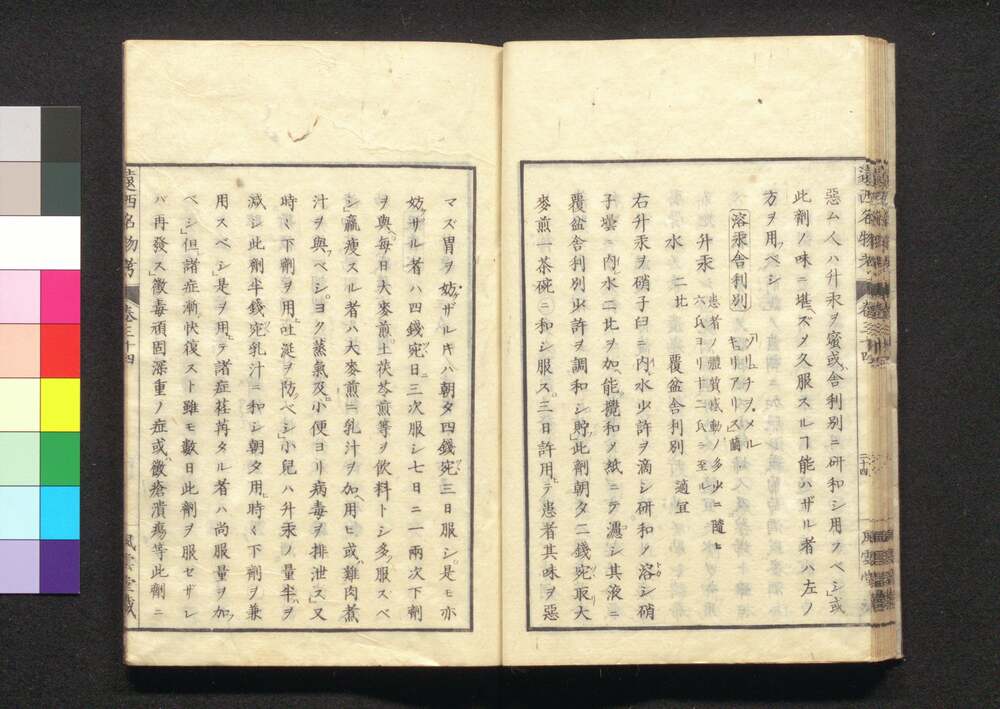 惡ム人ハ升汞ヲ蜜或舍利別ニ研和シ用フベシ或
此劑ノ味ニ堪ズメ久服スルヿ能ハザル者ハ左ノ
方ヲ用フベシ
溶汞舍利別
升汞 患者ノ體質感動ノ多少ニ隨ヒ
六氏ヨリ十二氏ニ至ル
水 二比 覆盆舍利別 適宜
右升汞ヲ硝子臼ニ内レ水少許ヲ滴シ研和メ溶シ硝
子壜ニ内レ水二比ヲ加ヘ能攪和メ紙ニテ濾シ其液ニ
覆盆舍利別少許ヲ調和シ貯フ此劑朝夕二錢宛取リ大
麥煎一茶碗ニ和シ服ス三日許用テ患者其味ヲ惡
マズ胃ヲ妨ゲザルキハ朝夕四錢宛三日服シ是モ亦
妨ゲザル者ハ四錢宛日ニ三次服シ七日ニ一兩次下劑
ヲ與ヘ每日大麥煎土茯苓煎等ヲ飲料トシ多服スベ
シ羸瘦スル者ハ大麥煎ニ乳汁ヲ加ヘ用ヒ或雞肉煮
汁ヲ與フベシヨク蒸氣及小便ヨリ病毒ヲ排泄ス又
時々下劑ヲ用吐涎ヲ防グベシ小兒ハ升汞ノ量半ヲ
減シ此劑半錢宛乳汁ニ和シ朝夕用ヒ時々下劑ヲ兼
用スベシ是ヲ用テ諸症荏苒タル者ハ尚服量ヲ加フ
ベシ但諸症漸ク快復スト雖モ數日此劑ヲ服セザレ
バ再發ス黴毒頑固深重ノ症或黴瘡潰瘍等此劑ニ
遠西名物考 卷三十四 風雲堂藏